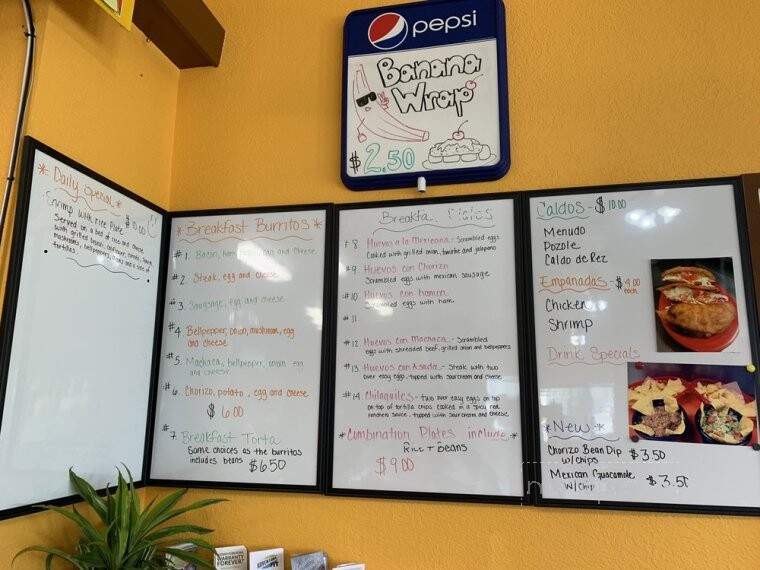 pepsi
Banana
Wrap
$2.50
* Daily Special *
Shrimp with rice Plate $10.00
Served on a bed of rice and cheese,
with grilled onion,
mushrooms, bellpeppers, and a side of
tortillas.
* Breakfast Burritos *
#1. Bacon, egg and Cheese
#2. Steak, egg and cheese
#3. Sausage, egg and cheese
#4. Bellpepper, onion, mushroom, egg
and cheese
#5. Machaca, bellpepper, onion, egg
and cheese
#6. Chorizo, potato, egg and cheese
$6.00
#7. Breakfast Torta
Same choices as the burritos
includes beans $6.50
Breakfa
#8 Huevos a la Mexicana - Scrambled eggs
Cooked with grilled onion, tomatoe and jalapeno
#9 Huevos con Chorizo
Scrambled eggs with mexican sausage
#10 Huevos con Jamon
Scrambled eggs with ham.
#11
#12 Huevos con Machaca - Scrambled
eggs with shreaded beef, grilled onion and bellpeppers
#13 Huevos con Asada - Steak with two
over easy eggs, topped with sourcream and cheese
#14 Chilaquiles - two over easy eggs on top
on top of tortilla chips cooked in a spicy red
ranchero sauce, topped with sourcream and cheese
* Combination Plates include *
Rice + Beans
$9.00
Caldos - $10.00
Menudo
Pozole
Caldo de Pez
Empanadas - $4.00
each
Chicken
Shrimp
Drink Specials
* New *
Chorizo Bean Dip $3.50
w/chips
Mexican Guacamole $3.50
w/chip
WARRANTY
FOREVER!